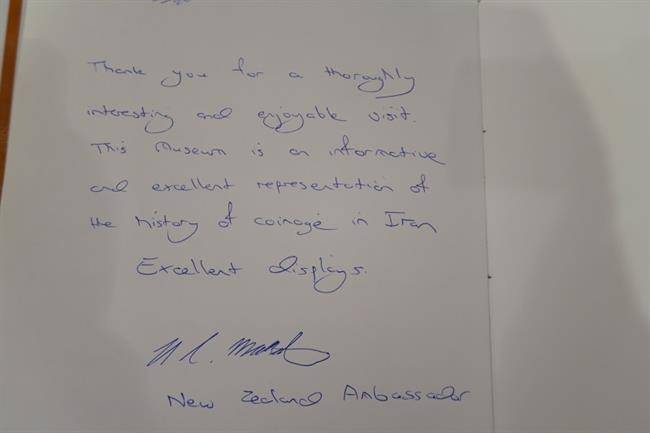 Thank you for a thoroughly
interesting and enjoyable visit.
This Museum is an informative
and excellent representation of
the history of coinage in Iran
Excellent displays.
New Zealand Ambassador